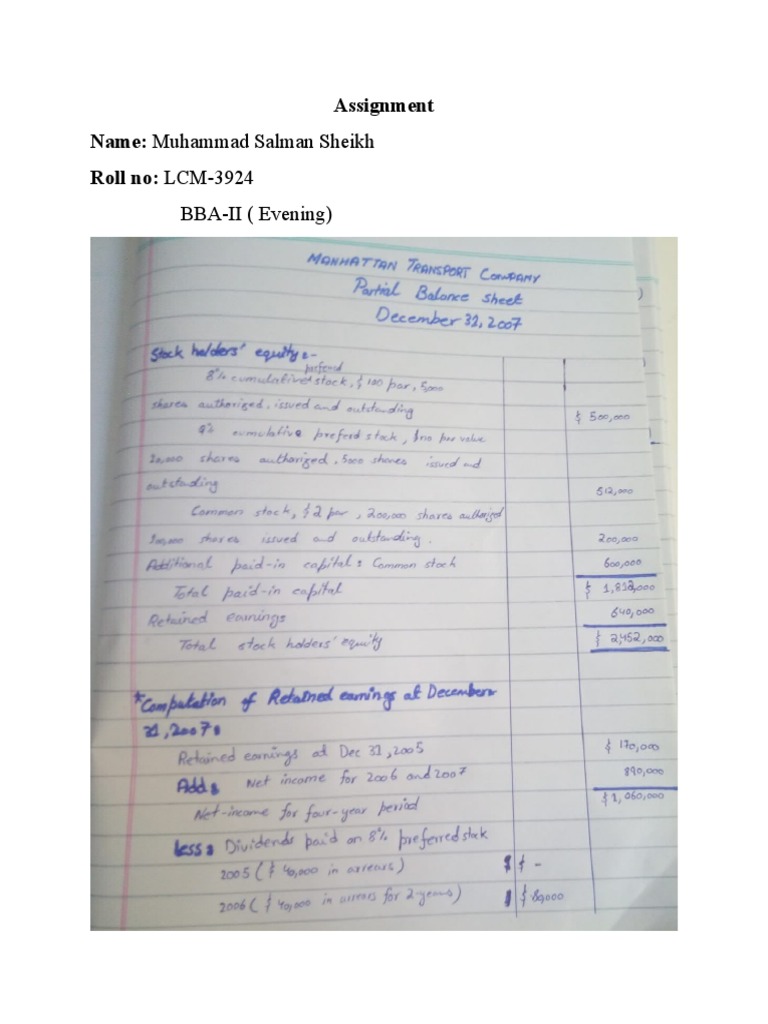 Assignment
Name: Muhammad Salman Sheikh
Roll no: LCM-3924
BBA-II ( Evening)
MANHATTAN TRANSPORT COMPANY
Partial Balance sheet
December 31, 2007
Stock holders' equity:-
8% cumulative preferred stock, $ 100 par, 5,000
shares authorized, issued and outstanding $ 500,000
9% cumulative preferd stock, $no par value
20,000 shares authorized, 5000 shares issued and
outstanding 512,000
Common stock, $2 par, 200,000 shares authorized
100,000 shares issued and outstanding. 200,000
Additional paid-in capital: Common stock 600,000
Total paid-in capital $ 1,812,000
Retained earnings 640,000
Total stock holders' equity $ 2,452,000
*Computation of Retained earnings at December
31, 2007:
Retained earnings at Dec 31, 2005 $ 170,000
Add: Net income for 2006 and 2007 890,000
Net-income for four-year period $ 1,060,000
Less: Dividends paid on 8% preferred stock
2005 ($ 40,000 in arrears) $ -
2006 ($ 40,000 in arrears for 2-years) $ 80,000